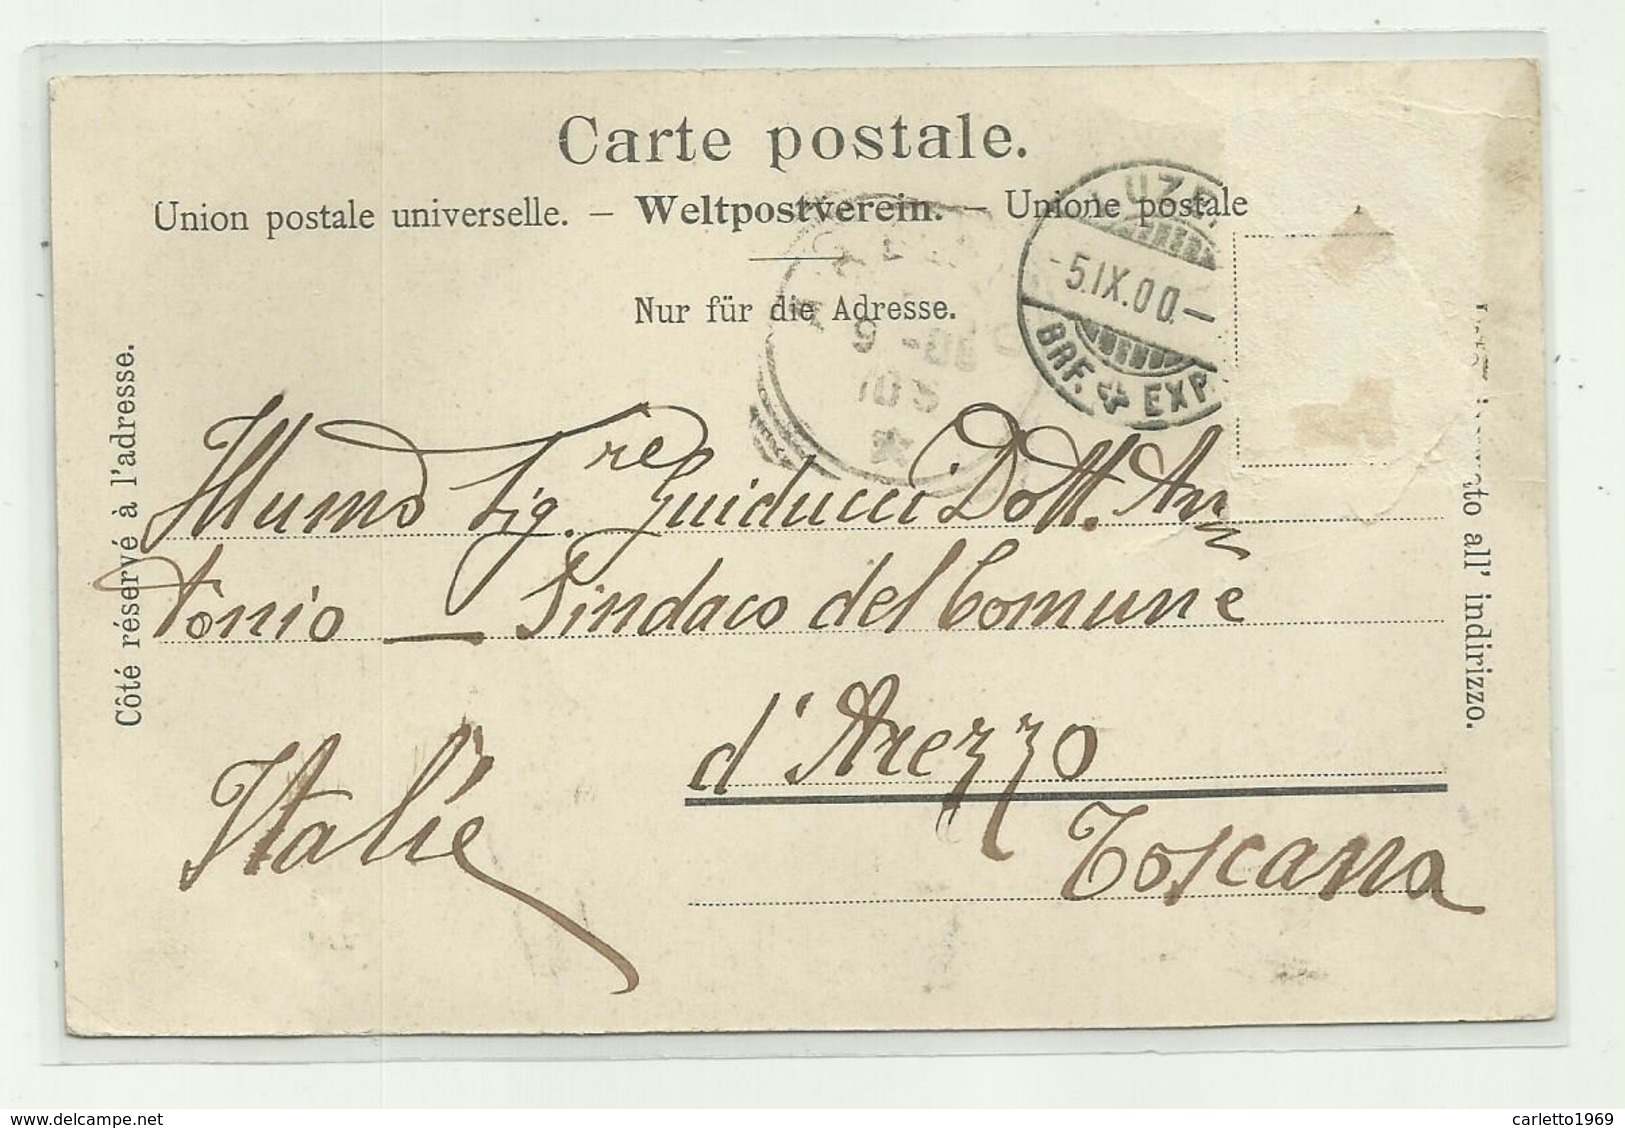 Carte postale.
Union postale universelle. – Weltpostverein. – Unione postale
Nur für die Adresse.
Côté réservé à l'adresse.
LUZE
-5.IX.00.-
BRF. EXP.
9 -
Illumo Sig.re Guiducci Dott. An
tonio — Sindaco del Comune
d'Arezzo
Italie
Toscana
all' indirizzo.
www.delcampe.net
carletto1969